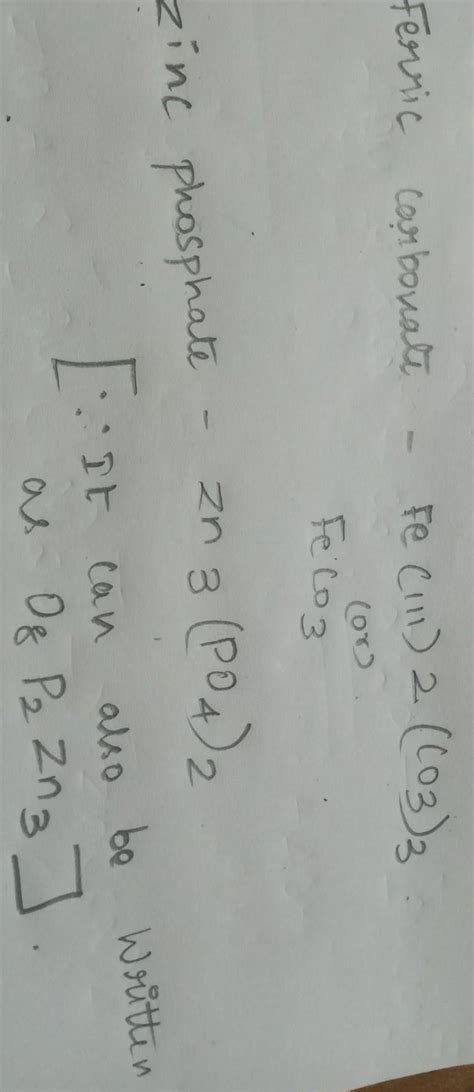 Ferric carbonate - Fe(III)2(CO3)3
(or)
FeCO3
Zinc phosphate - Zn3(PO4)2
[∵ It can also be written
as O8P2Zn3].